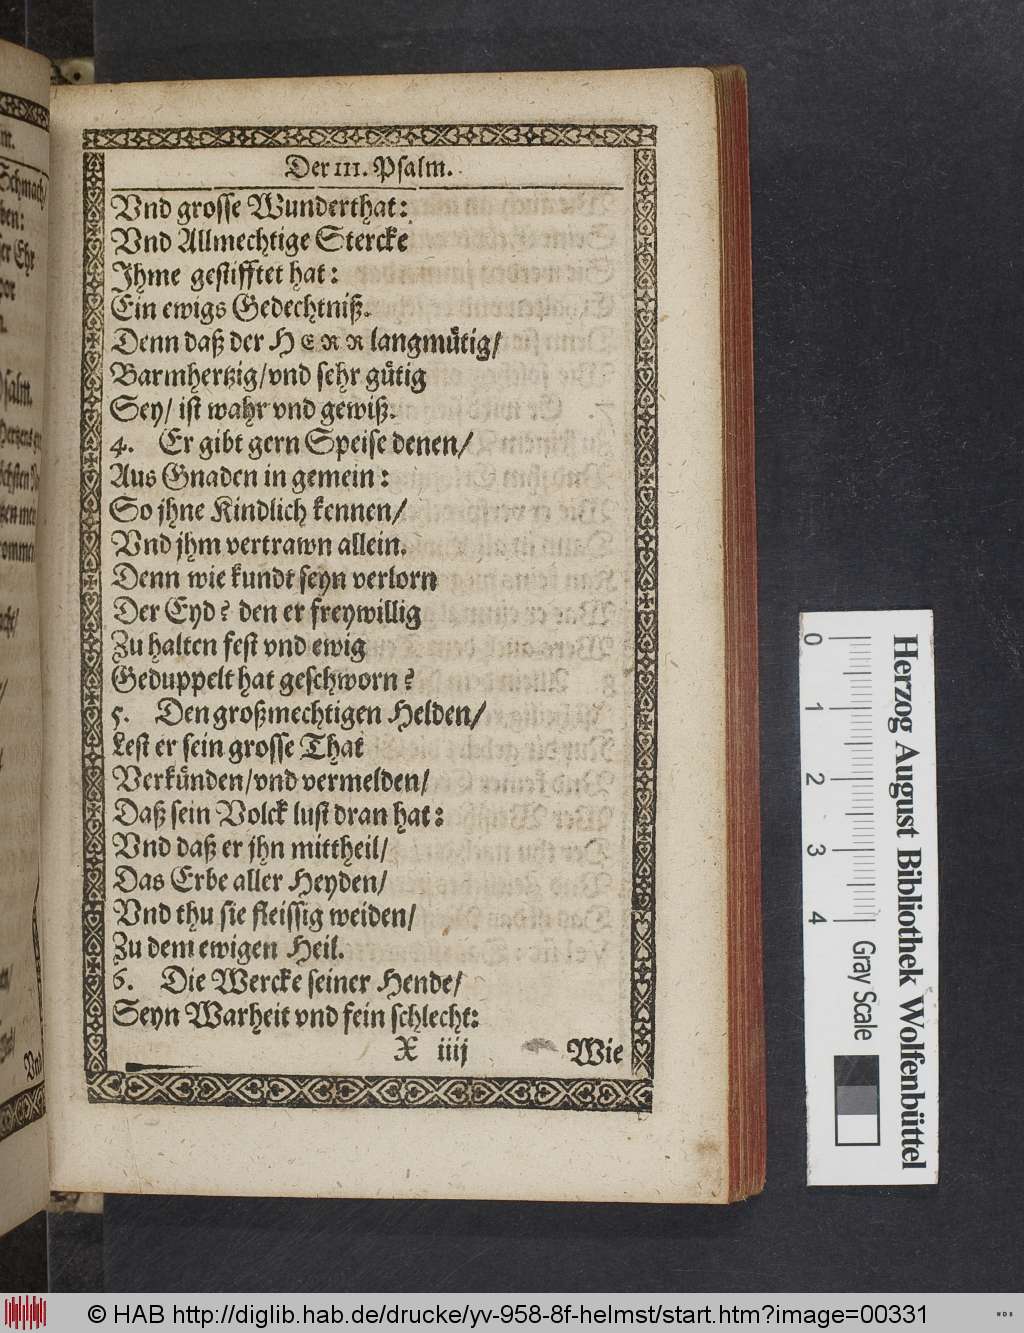 Der III. Psalm.
Vnd grosse Wunderthat:
Vnd Allmechtige Stercke
Jhme gestifftet hat:
Ein ewigs Gedechtniß.
Denn daß der HERR langmuͤtig/
Barmhertzig/vnd sehr guͤtig
Sey/ ist wahr vnd gewiß.
4. Er gibt gern Speise denen/
Aus Gnaden in gemein:
So jhne Kindlich kennen/
Vnd jhm vertrawn allein.
Denn wie kundt seyn verlorn
Der Eyd? den er freywillig
Zu halten fest vnd ewig
Geduppelt hat geschworn?
5. Den großmechtigen Helden/
Lest er sein grosse That
Verkuͤnden/vnd vermelden/
Daß sein Volck lust dran hat:
Vnd daß er jhn mittheil/
Das Erbe aller Heyden/
Vnd thu sie fleissig weiden/
Zu dem ewigen Heil.
6. Die Wercke seiner Hende/
Seyn Warheit vnd fein schlecht:
X iiij Wie
Schmach/
Vnd
0 1 2 3 4
Gray Scale
Herzog August Bibliothek Wolfenbüttel
© HAB http://diglib.hab.de/drucke/yv-958-8f-helmst/start.htm?image=00331